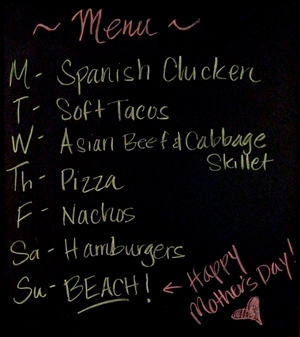 ~ Menu ~
M - Spanish Chicken
T - Soft Tacos
W - Asian Beef & Cabbage
Skillet
Th - Pizza
F - Nachos
Sa - Hamburgers
Su - BEACH! ← Happy
Mother's Day!